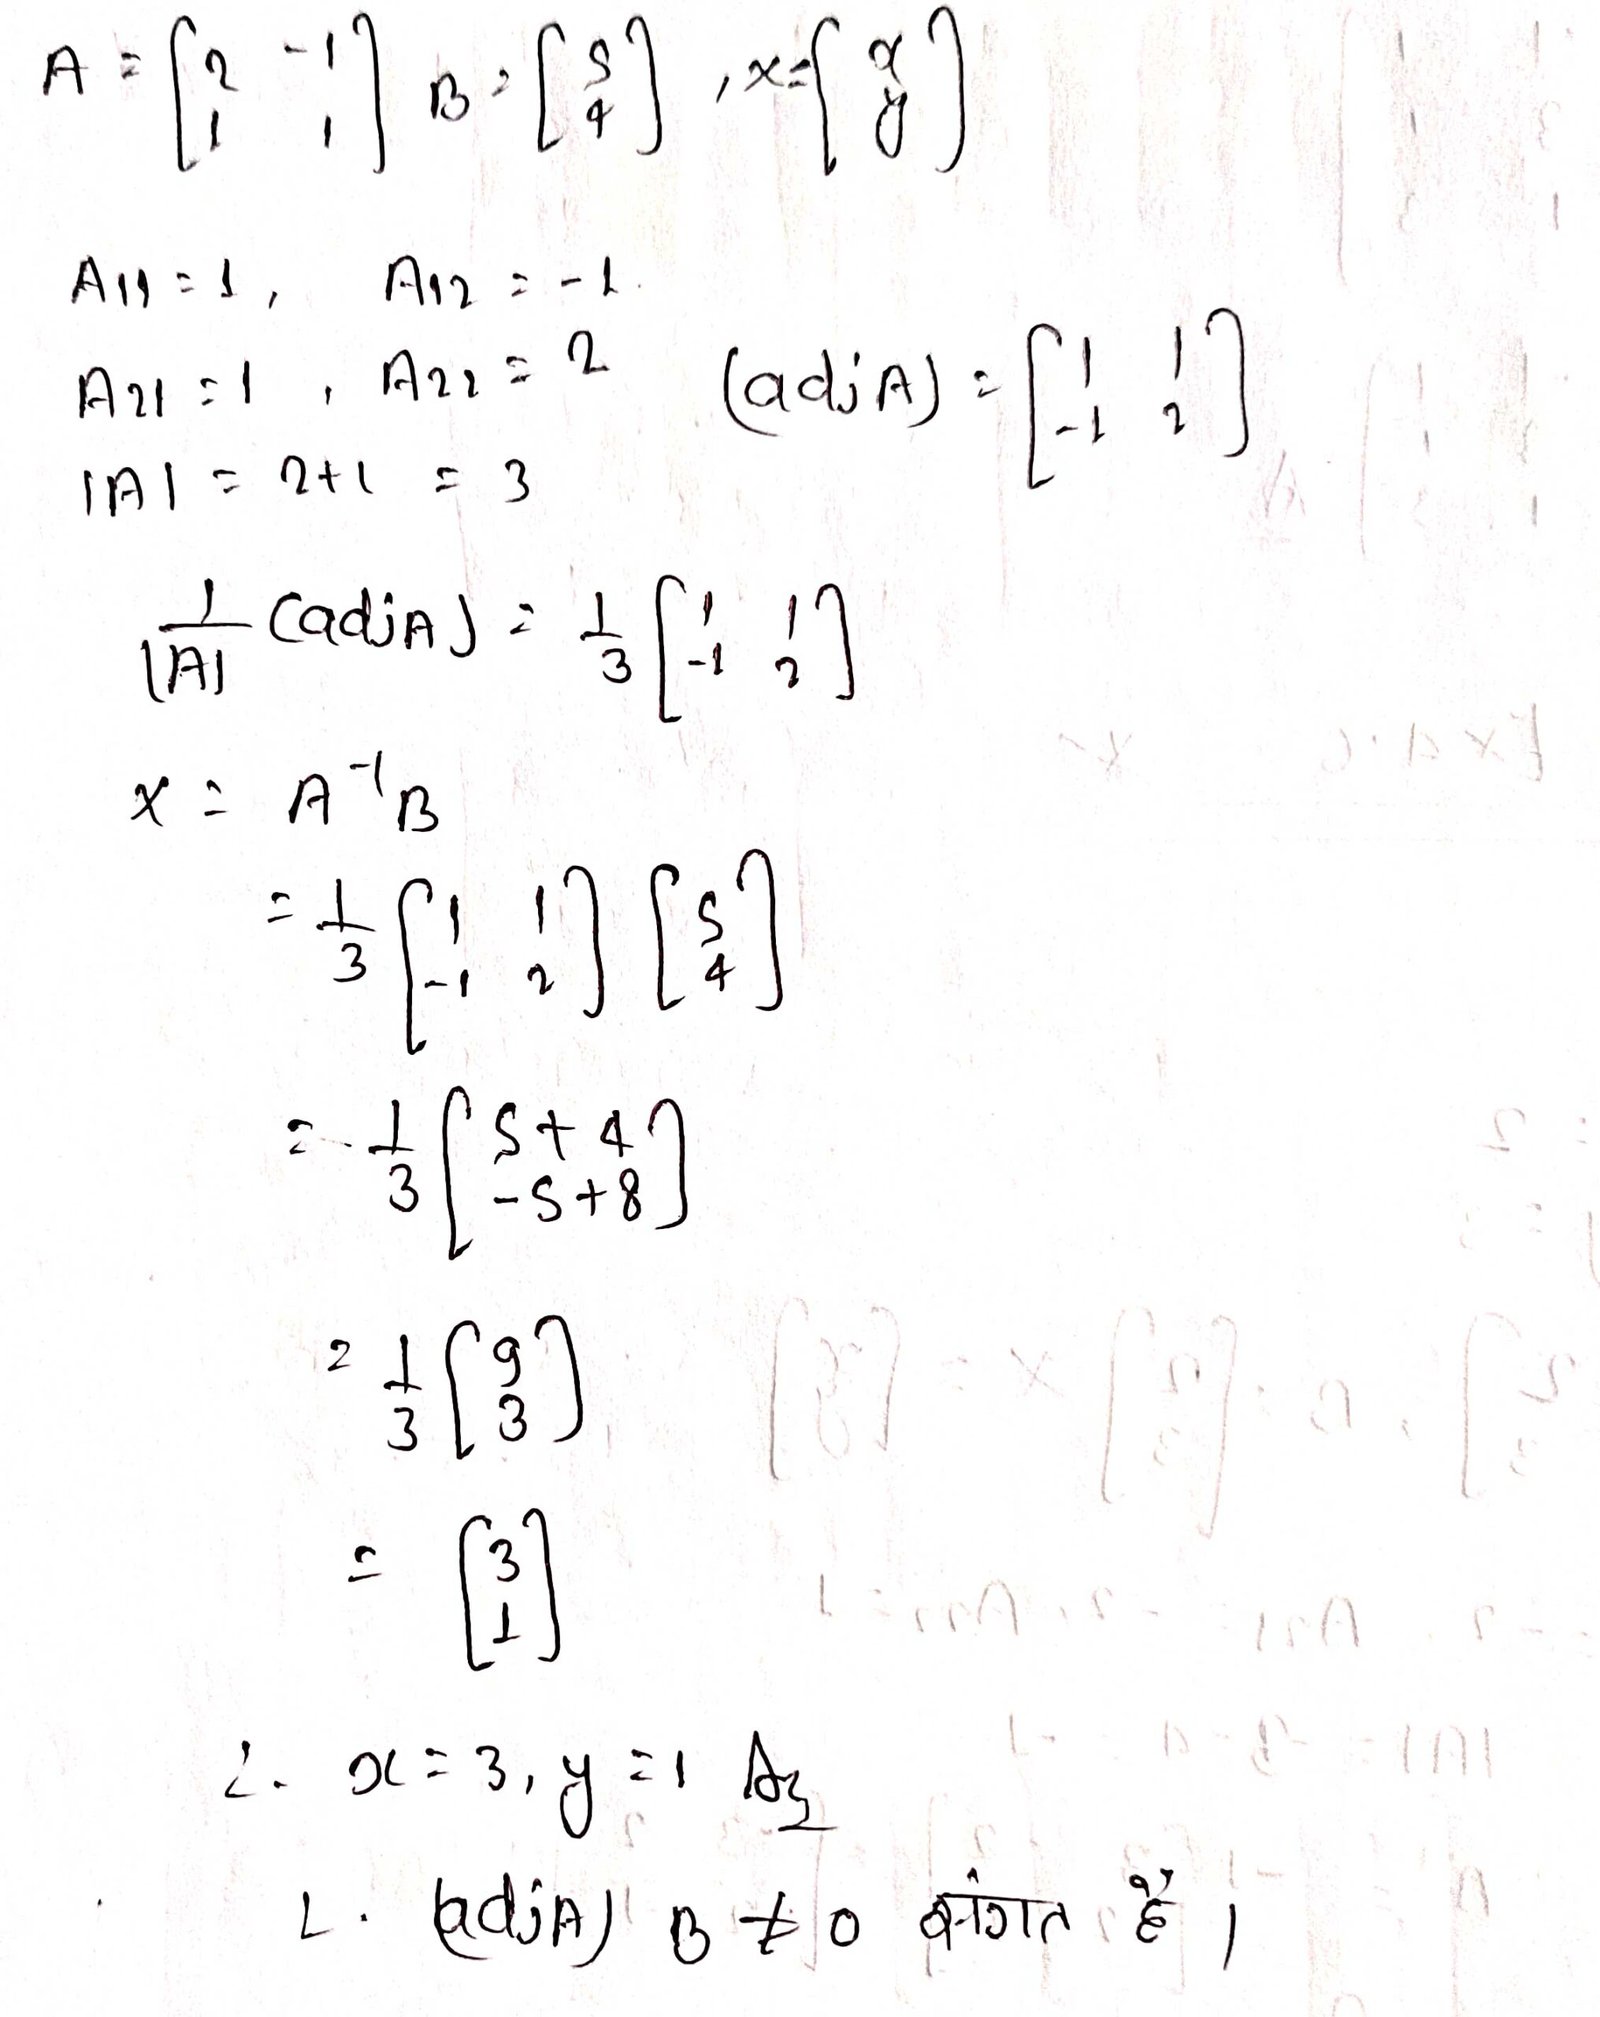 A = [2 -1
1 1] B = [5
4] , x = [x
y]
A11 = 1, A12 = -1.
A21 = 1 , A22 = 2 (adjA) = [1 1
-1 2]
|A| = 2+1 = 3
1/|A| (adjA) = 1/3 [1 1
-1 2]
x = A⁻¹B
= 1/3 [1 1
-1 2] [5
4]
= 1/3 [5+4
-5+8]
= 1/3 [9
3]
= [3
1]
∴ x = 3, y = 1 Ans
∴ (adjA) B ≠ 0 संगत हैं ।